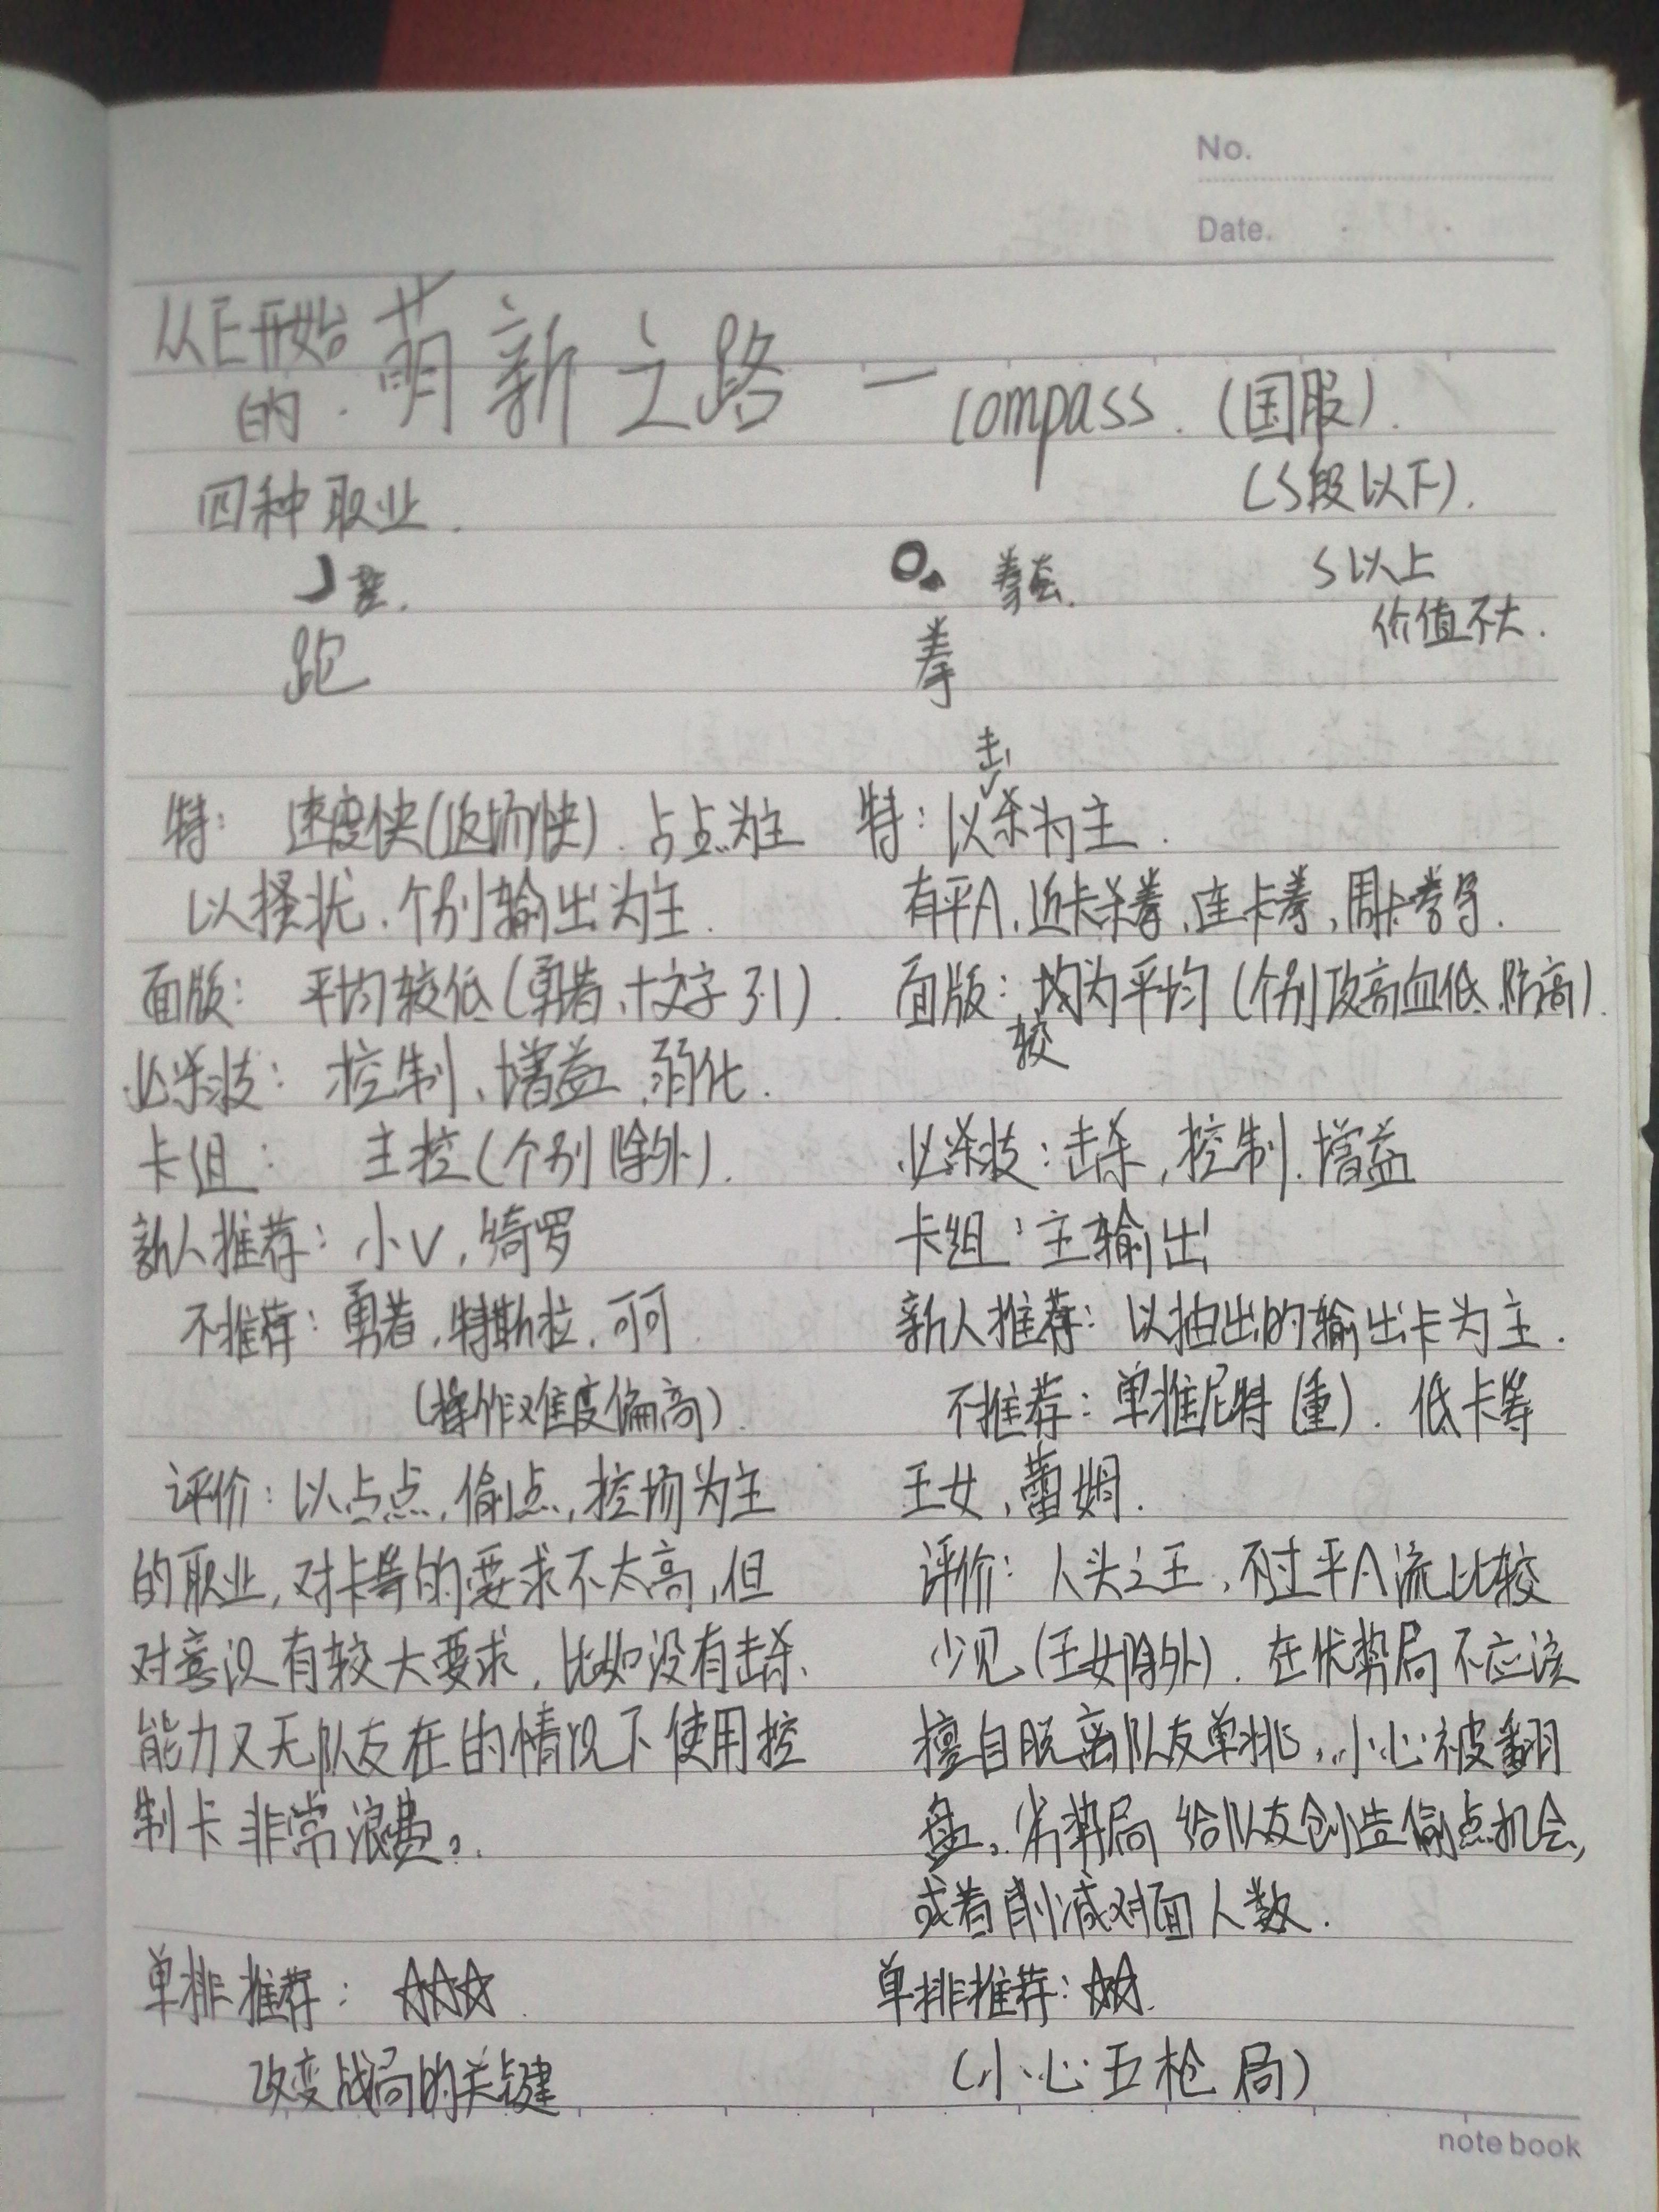 No.
Date.
从E开始
的.萌新之路 — compass.(国服).
四种职业.
(S段以下).
拳套.
S以上
价值不大.
跑
拳
特: 速度快(返场快).占点为主
以搔扰.个别输出为主.
面版: 平均较低(勇者,十文字引).
必杀技: 控制、增益.弱化.
卡组: 主控(个别除外).
新人推荐: 小V,绮罗
不推荐: 勇者,特斯拉.可可.
(操作难度偏高).
评价: 以占点,偷点,控场为主
的职业,对卡等的要求不太高,但
对意识有较大要求,比如没有击杀
能力又无队友在的情况下使用控
制卡非常浪费。
单排推荐: ☆☆☆.
改变战局的关键
击
特: 以杀为主.
有平A,近卡杀拳,连卡拳,周卡拳等.
面版: 均为平均(个别攻高血低.防高).
较
必杀技: 击杀,控制.增益
卡组: 主输出
新人推荐: 以抽出的输出卡为主.
不推荐: 单推尼特(重).低卡等
王女,蕾姆.
评价: 人头之王,不过平A流比较
少见(王女除外).在优势局不应该
擅自脱离队友单挑,小心被翻
盘。劣势局给队友创造偷点机会,
或者削减对面人数.
单排推荐: ☆☆.
(小心五枪局)
note book